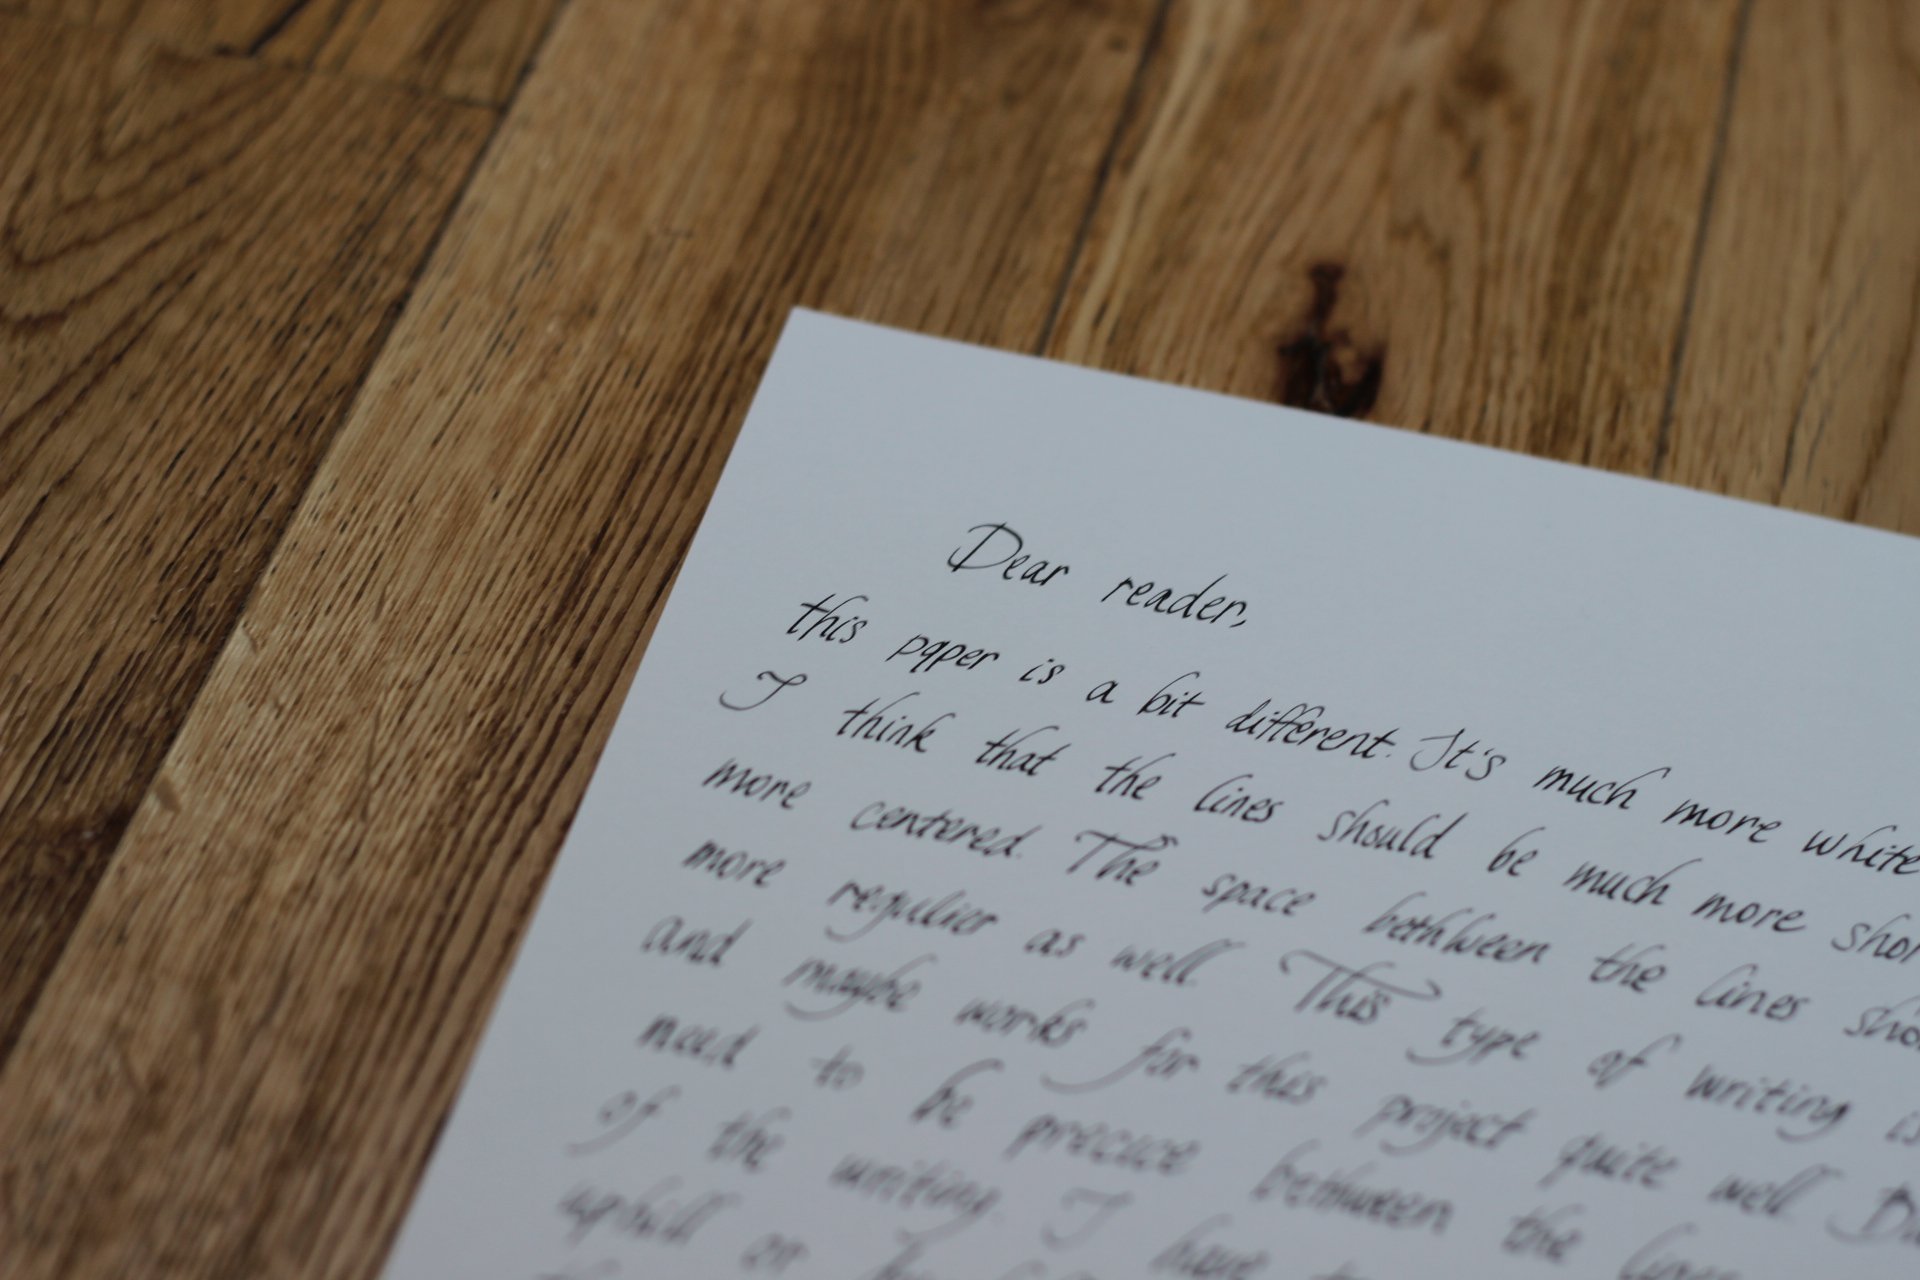 Dear reader,
this paper is a bit different. It's much more white
I think that the lines should be much more shor
more centered. The space bethween the lines sho
more regulier as well. This type of writing is
and maybe works for this project quite well. D
need to be precice bethween the lines
of the writing. I have
uphill or